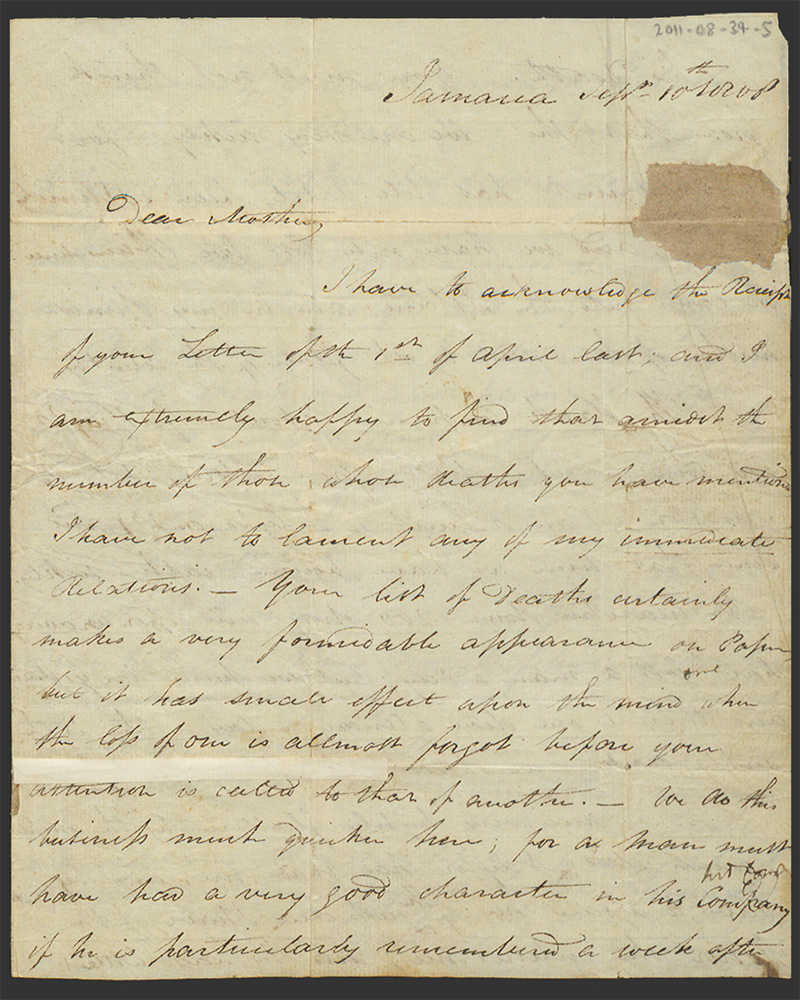 2011-08-34-5
Jamaica Sepr. 10th 1808
Dear Mother,
I have to acknowledge the Receipt
of your Letter of the 1st of April last; and I
am extremely happy to find that amidst the
number of those whose deaths you have mention
I have not to lament any of my immediate
Relations. — Your list of Deaths certainly
makes a very formidable appearance on Paper
but it has small effect upon the mind when
the loss of one is allmost forgot before your
attention is called to that of another. — We do this
business much quicker here; for a man must
have had a very good character in his Company
if he is particularly remembered a week after